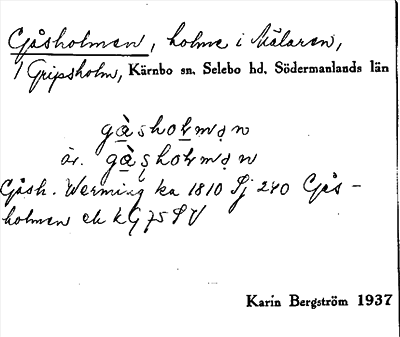 Gåsholmen, holme i Mälaren,
/ Gripsholm, Kärnbo sn. Selebo hd. Södermanlands län
gåshoḷmạn
äv. gåshoḷmạn
Gåsh. Werming ka 1810 Sj 240 Gås-
holmen ek kG 75 S V
Karin Bergström 1937